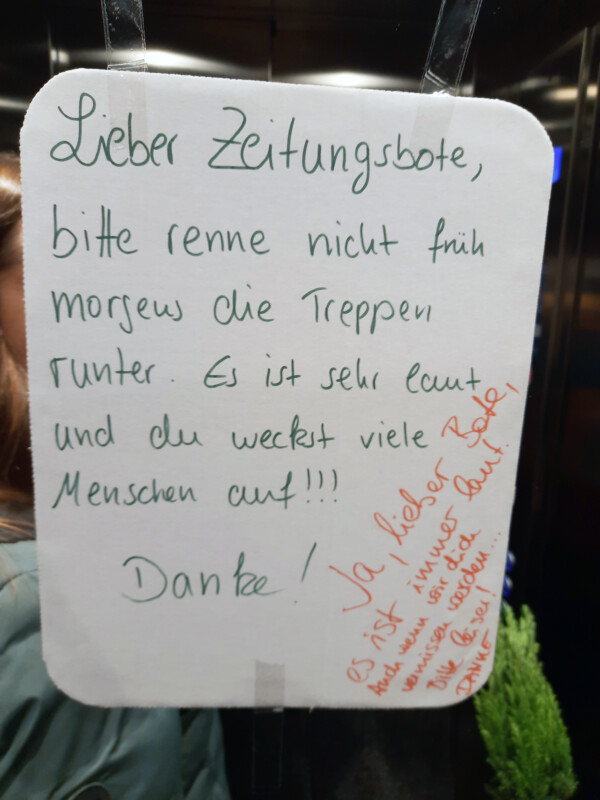 Lieber Zeitungsbote,
bitte renne nicht früh
morgens die Treppen
runter. Es ist sehr laut
und du weckst viele
Menschen auf!!!
Danke!
Ja, lieber Bote,
es ist immer laut.
Auch wenn wir dich
vermissen werden...
Bitte leiser!
DANKE